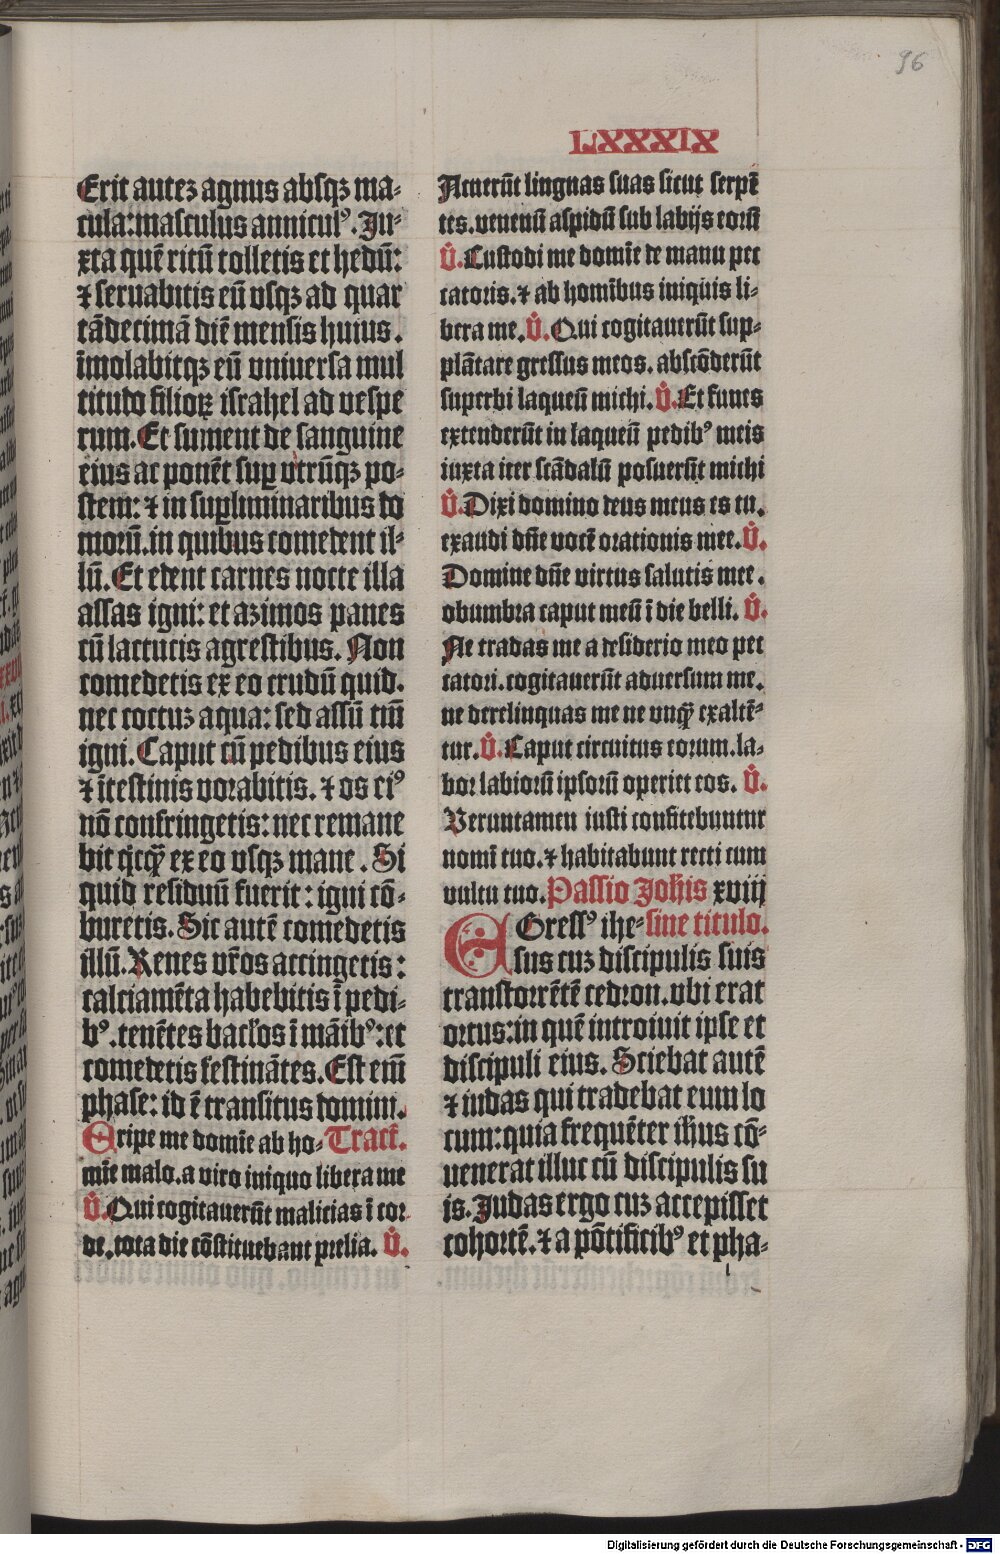 96
LXXXIX
Erit autez agnus absqꝫ ma⸗
cula: masculus annicul⁹. Iu⸗
xta quē ritū tolletis et hedū:
⁊ seruabitis eū vsqꝫ ad quar
tādecimā diē mensis huius.
īmolabitqꝫ eū vniuersa mul
titudo filioꝝ israhel ad vespe
rum. Et sument de sanguine
eius ac ponēt sup̱ vtrūqꝫ po⸗
stem: ⁊ in sup̱liminaribus do
morū. in quibus comedent il⸗
lū. Et edent carnes nocte illa
assas igni: et azimos panes
cū lactucis agrestibus. Non
comedetis ex eo crudū quid.
nec coctuz aqua: sed assū tm̄
igni. Caput cū pedibus eius
⁊ ītestinis vorabitis. ⁊ os ei⁹
nō confringetis: nec remane
bit q̇cꝙ̄ ex eo vsqꝫ mane. Si
quid residuū fuerit: igni cō⸗
buretis. Sic autē comedetis
illū. Renes vr̄os accingetis:
calciamēta habebitis ī pedi⸗
b⁹. tenētes bacl'os ī māib⁹: et
comedetis festinātes. Est em̄
phase: id ē transitus domini.
Eripe me domīe ab ho⸗ Tract̄.
mīe malo. a viro iniquo libera me
V̊. Qui cogitauerūt malicias ī cor
de. tota die cōstituebant prelia. V̊.
Acuerūt linguas suas sicut serpē
tes. venenū aspidū sub labijs eorū
V̊. Custodi me domīe de manu pec
catoris. ⁊ ab homībus iniquis li⸗
bera me. V̊. Qui cogitauerūt sup⸗
plātare gressus meos. abscōderūt
superbi laqueū michi. V̊. Et funes
extenderūt in laqueū pedib⁹ meis
iuxta iter scādalū posuerūt michi
V̊. Dixi domino deus meus es tu.
exaudi dn̄e vocē orationis mee. V̊.
Domine dn̄e virtus salutis mee.
obumbra caput meū ī die belli. V̊.
Ne tradas me a desiderio meo pec
catori. cogitauerūt aduersum me.
ne derelinquas me ne vnꝙ̄ exaltē⸗
tur. V̊. Caput circuitus eorum. la⸗
bor labiorū ipsorū operiet eos. V̊.
Veruntamen iusti confitebuntur
nomī tuo. ⁊ habitabunt recti cum
vultu tuo. Passio Joh̄is xviij
EGress⁹ ihe⸗ sine titulo.
sus cuz discipulis suis
transtorrētē cedron. vbi erat
ortus: in quē introiuit ipse et
discipuli eius. Sciebat autē
⁊ iudas qui tradebat eum lo
cum: quia frequēter ih̄us cō⸗
uenerat illuc cū discipulis su
is. Judas ergo cuz accepisset
cohortē. ⁊ a pōtificib⁹ et pha⸗
Digitalisierung gefördert durch die Deutsche Forschungsgemeinschaft - DFG